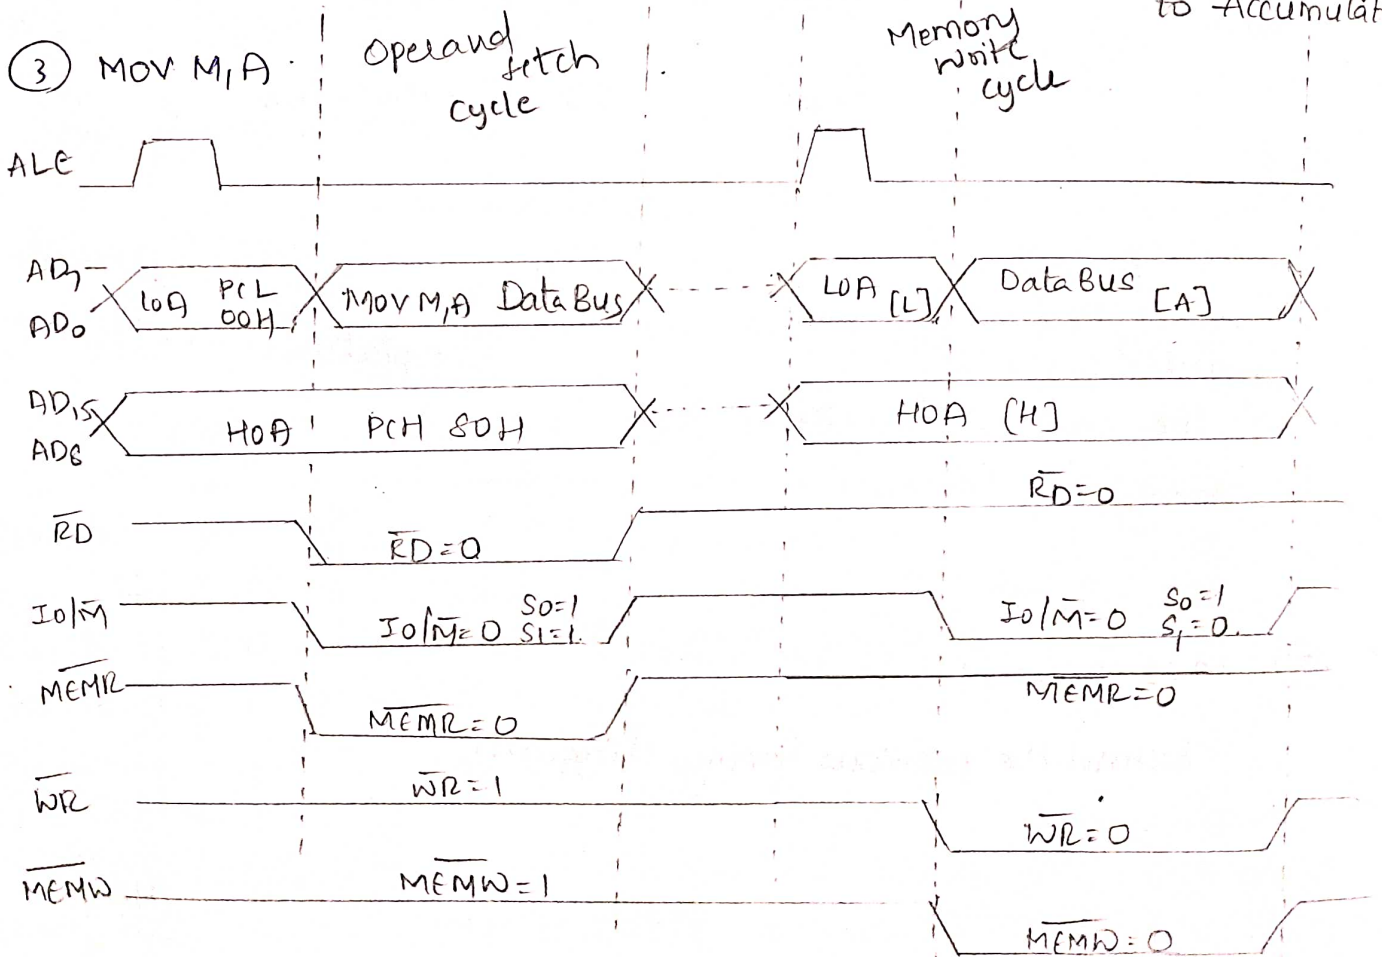 to Accumulat
③ MOV M,A
Operand fetch cycle
Memory write cycle
ALE
AD7- AD0
LOA PCL 00H
MOV M,A Data Bus
LOA [L]
Data Bus [A]
AD15 AD8
HOA PCH 80H
HOA [H]
R̅D̅
R̅D̅=0
R̅D̅=0
IO/M̅
IO/M̅=0 S0=1 S1=1
IO/M̅=0 S0=1 S1=0
M̅E̅M̅R̅
M̅E̅M̅R̅=0
M̅E̅M̅R̅=0
W̅R̅
W̅R̅=1
W̅R̅=0
M̅E̅M̅W̅
M̅E̅M̅W̅=1
M̅E̅M̅W̅=0